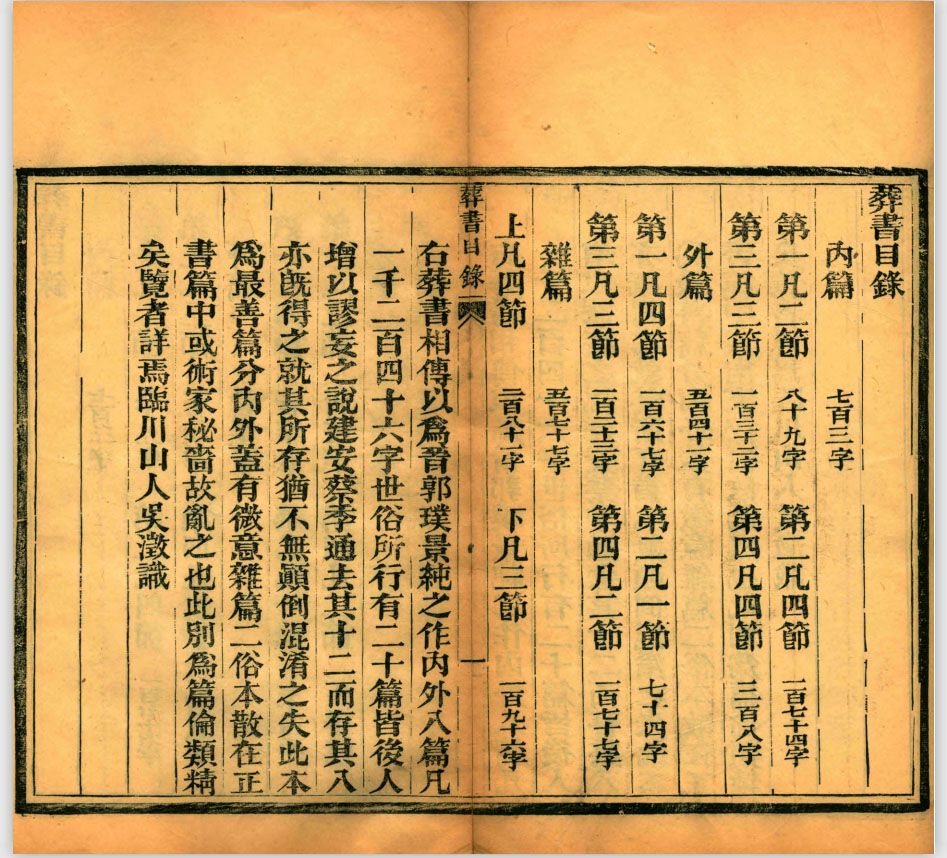 葬書目錄
內篇　七百三字
第一凡二節　八十九字　第二凡四節　一百七十四字
第三凡三節　一百三十二字　第四凡四節　三百八字
外篇　五百四十一字
第一凡四節　一百六十七字　第二凡一節　七十四字
第三凡三節　一百二十三字　第四凡二節　一百七十七字
雜篇　五百七十七字
上凡四節　三百八十一字　下凡三節　一百九十六字
葬書目錄　一
右葬書相傳以爲晉郭璞景純之作內外八篇凡
一千二百四十六字世俗所行有二十篇皆後人
增以謬妄之說建安蔡季通去其十二而存其八
亦既得之就其所存猶不無顚倒混淆之失此本
爲最善篇分內外蓋有微意雜篇二俗本散在正
書篇中或術家秘嗇故亂之也此別爲篇倫類精
矣覽者詳焉臨川山人吳澂識